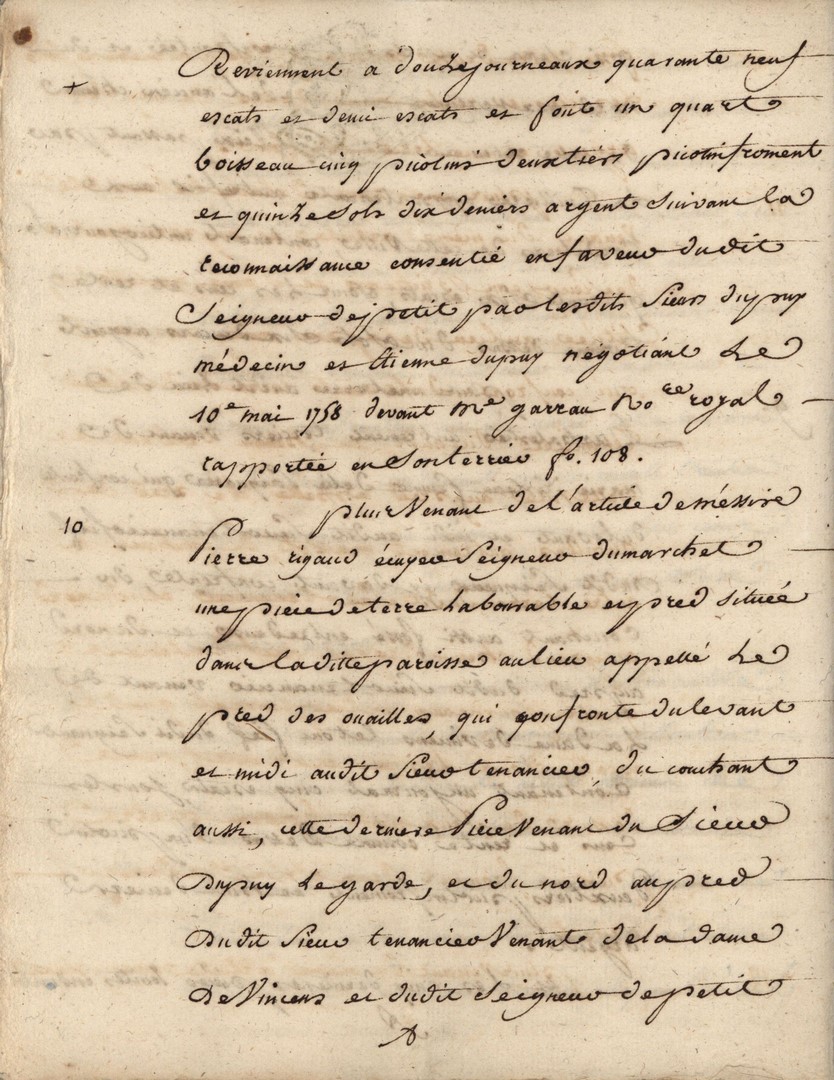 + Reviennent a douze journeaux quarante neuf
escats et demi escats et font un quart
boisseau cinq picotins deux tiers picotin froment
et quinze sols dix deniers argent suivant la
reconnaissance consentie en faveur du dit
Seigneur de petit par lesdits sieurs dupuy
médecin et Etienne dupuy négotiant Le
10e mai 1758 devant Me garrau No.re royal
rapportée en son terrier fo. 108.
10 plus Venant de l'article de méssire
Pierre rigaud écuyer Seigneur dumarchet
une pièce de terre Labourable et pred située
dans la ditte paroisse au lieu appellé Le
pred des ouailles, qui confronte du levant
et midi audit sieur tenancier, du couchant
aussi, cette dernière Pièce Venant du Sieur
Dupuy Legarde, et du nord au pred
Du dit Sieur tenancier Venant de la dame
De Vincens et dudit Seigneur de petit